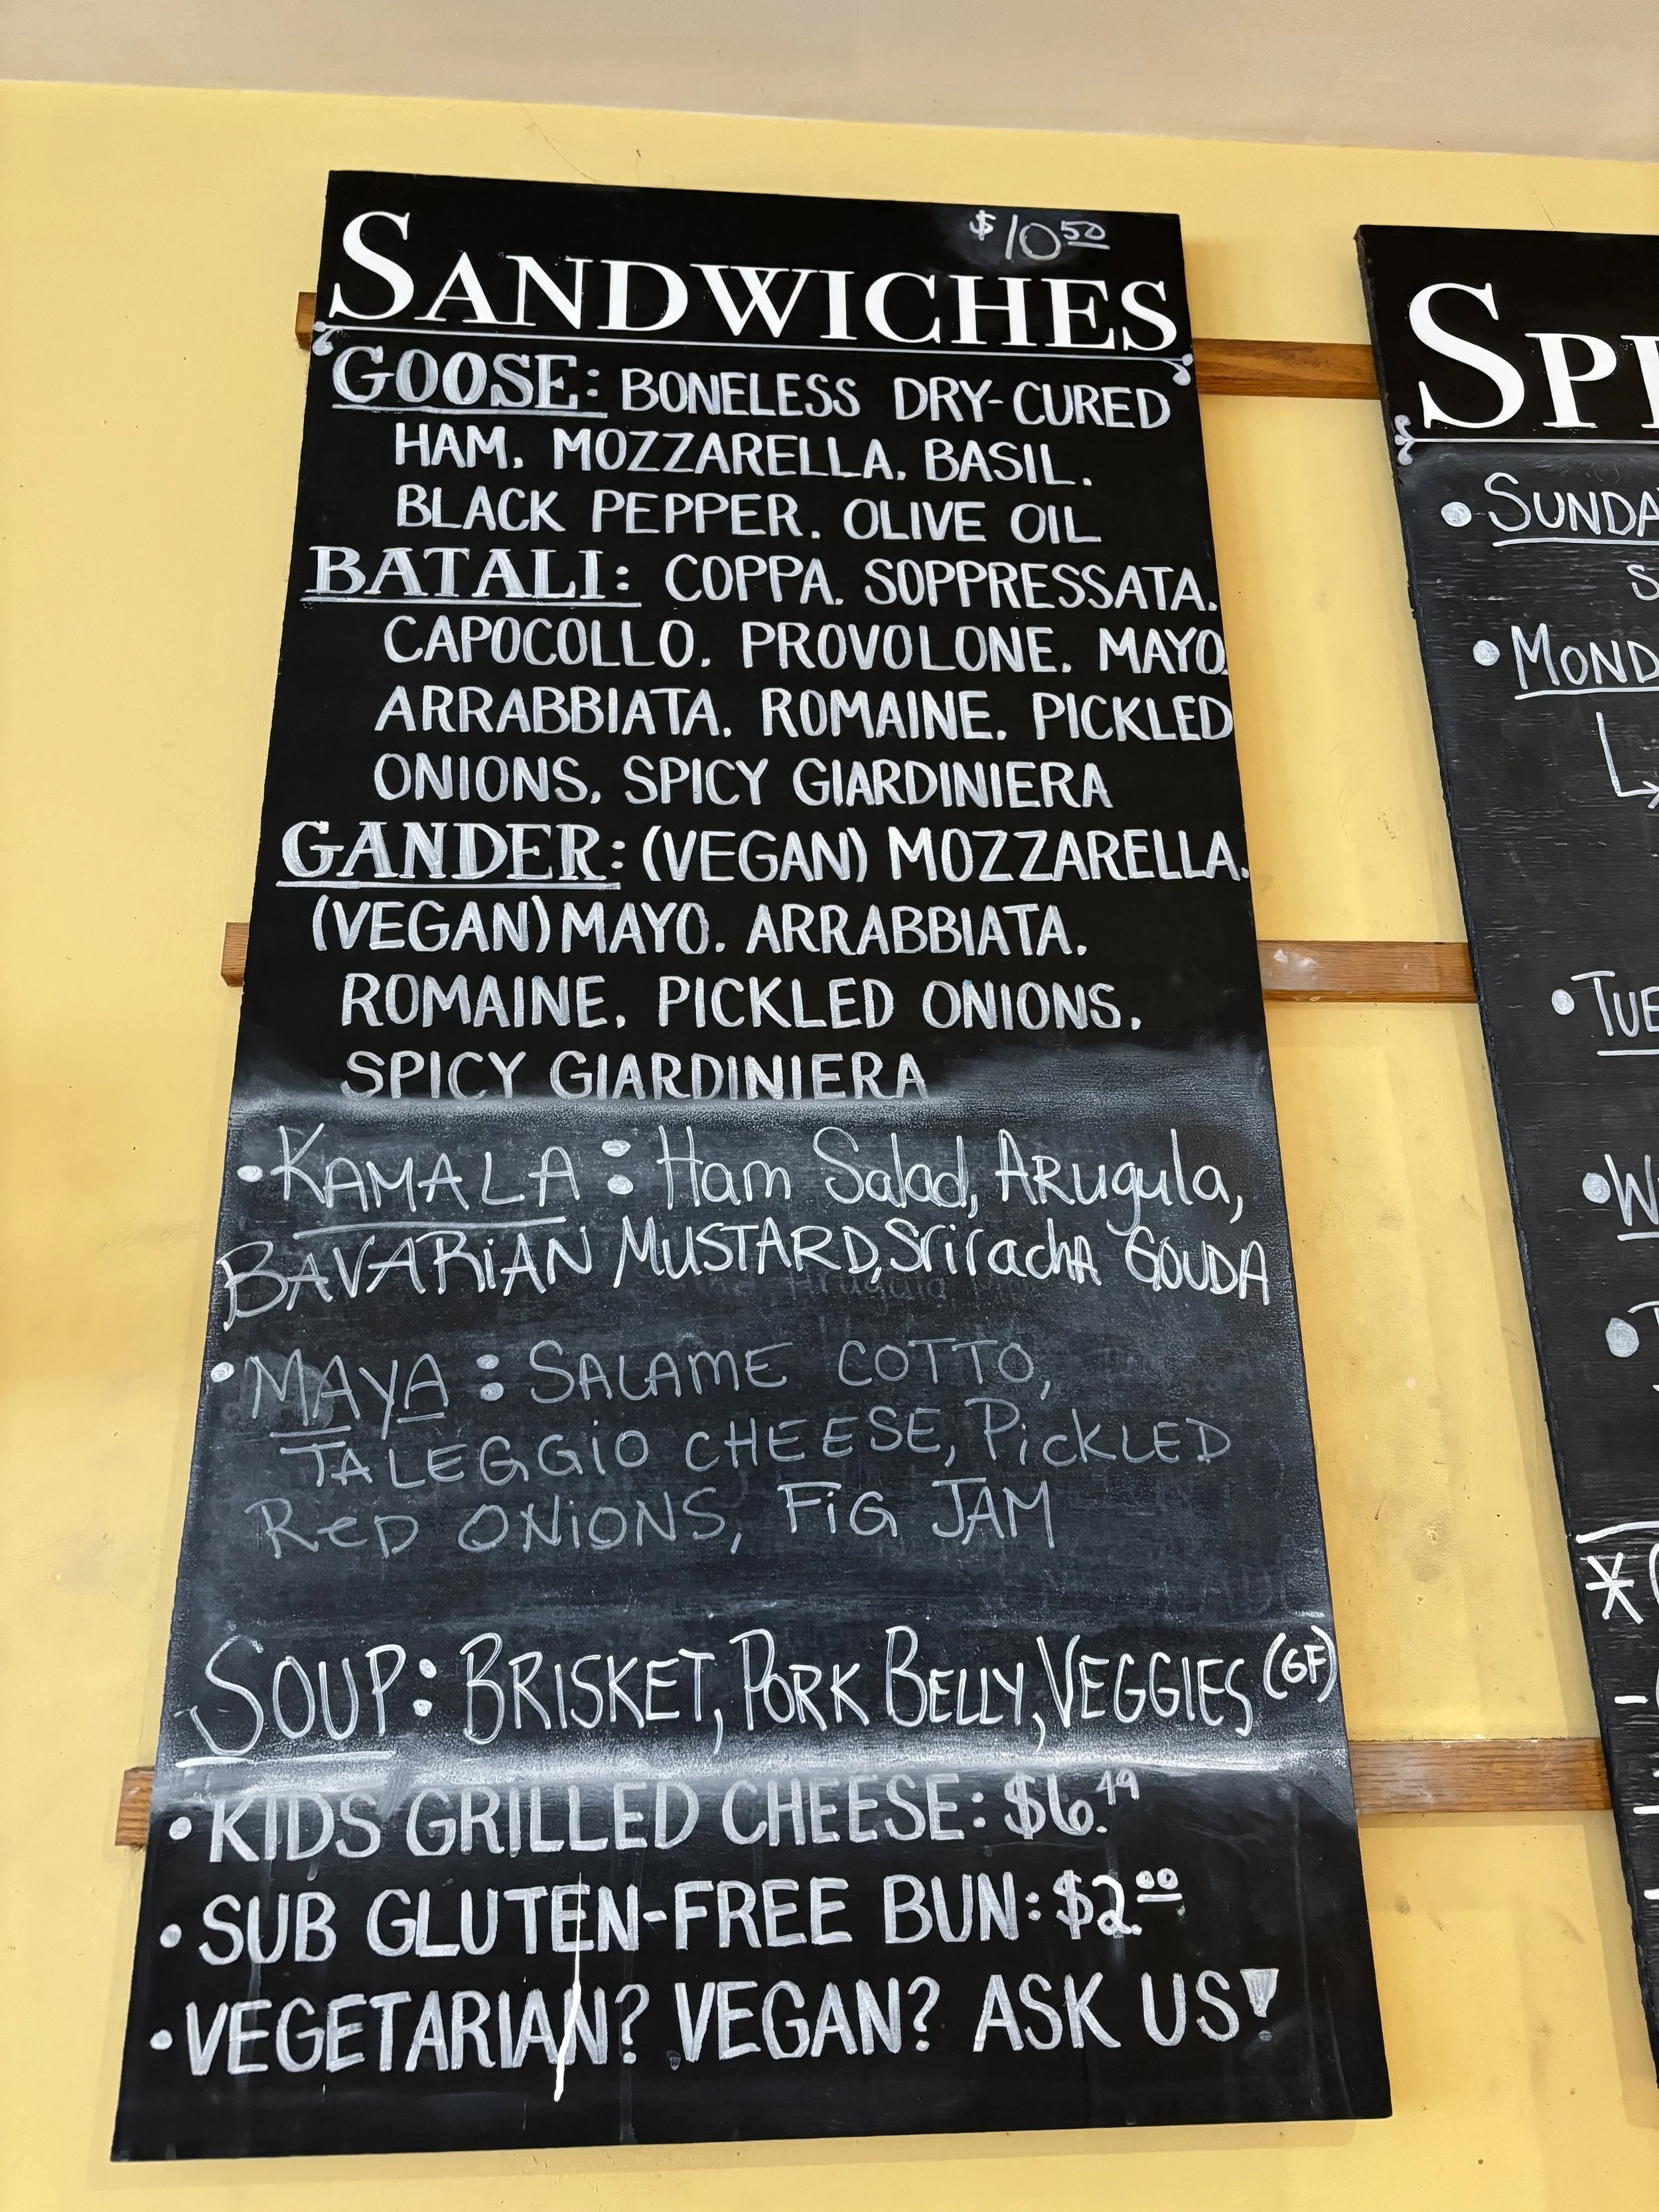 $10.50
SANDWICHES
GOOSE: BONELESS DRY-CURED
HAM, MOZZARELLA, BASIL,
BLACK PEPPER, OLIVE OIL
BATALI: COPPA, SOPPRESSATA,
CAPOCOLLO, PROVOLONE, MAYO,
ARRABBIATA, ROMAINE, PICKLED
ONIONS, SPICY GIARDINIERA
GANDER: (VEGAN) MOZZARELLA,
(VEGAN) MAYO, ARRABBIATA,
ROMAINE, PICKLED ONIONS,
SPICY GIARDINIERA
• KAMALA: Ham Salad, ARugula,
BAVARiAN MUSTARD, SrirachA GOUDA
• MAyA: SALAME COTTO,
TALEGGiO CHEESE, PiCKLED
ReD ONiONS, FiG JAM
SOUP: BRISKET, PORK BELLY, VEGGIES (GF)
• KIDS GRILLED CHEESE: $6.49
• SUB GLUTEN-FREE BUN: $2.00
• VEGETARIAN? VEGAN? ASK US!
SP
• SUNDA
S
• MOND
• TUE
• W
*